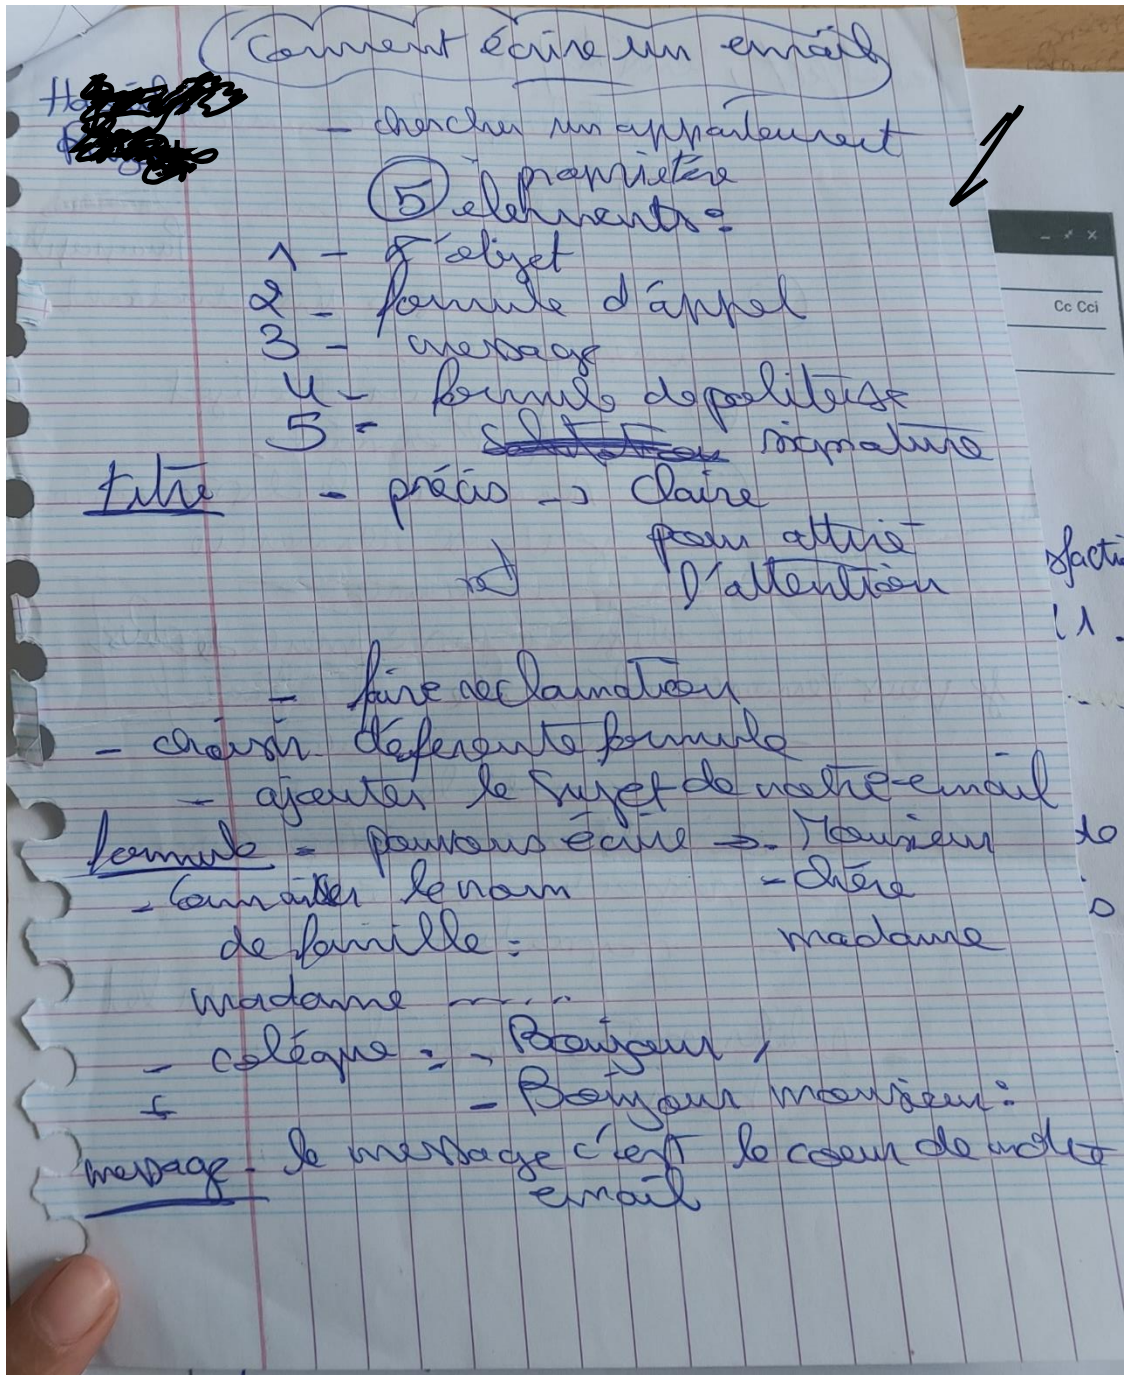 Comment écrire un email
- chercher un appartement
propriétère
5 élements :
1 - l'objet
2 - formule d'appel
3 - message
4 - formule de politèsse
5 - signature
titre - précis -> claire
pour attiré
l'attention
- faire reclamation
- choisir déferente formule
- ajouter le sujet de notre email
formule - pouvons écrire -> - Monsieur
- Connaître le nom - chère
de famille : madame
madame -----
- colègue : - Bonjour,
- Bonjour monsieur :
message - le message c'est le coeur de notre
email
Cc Cci